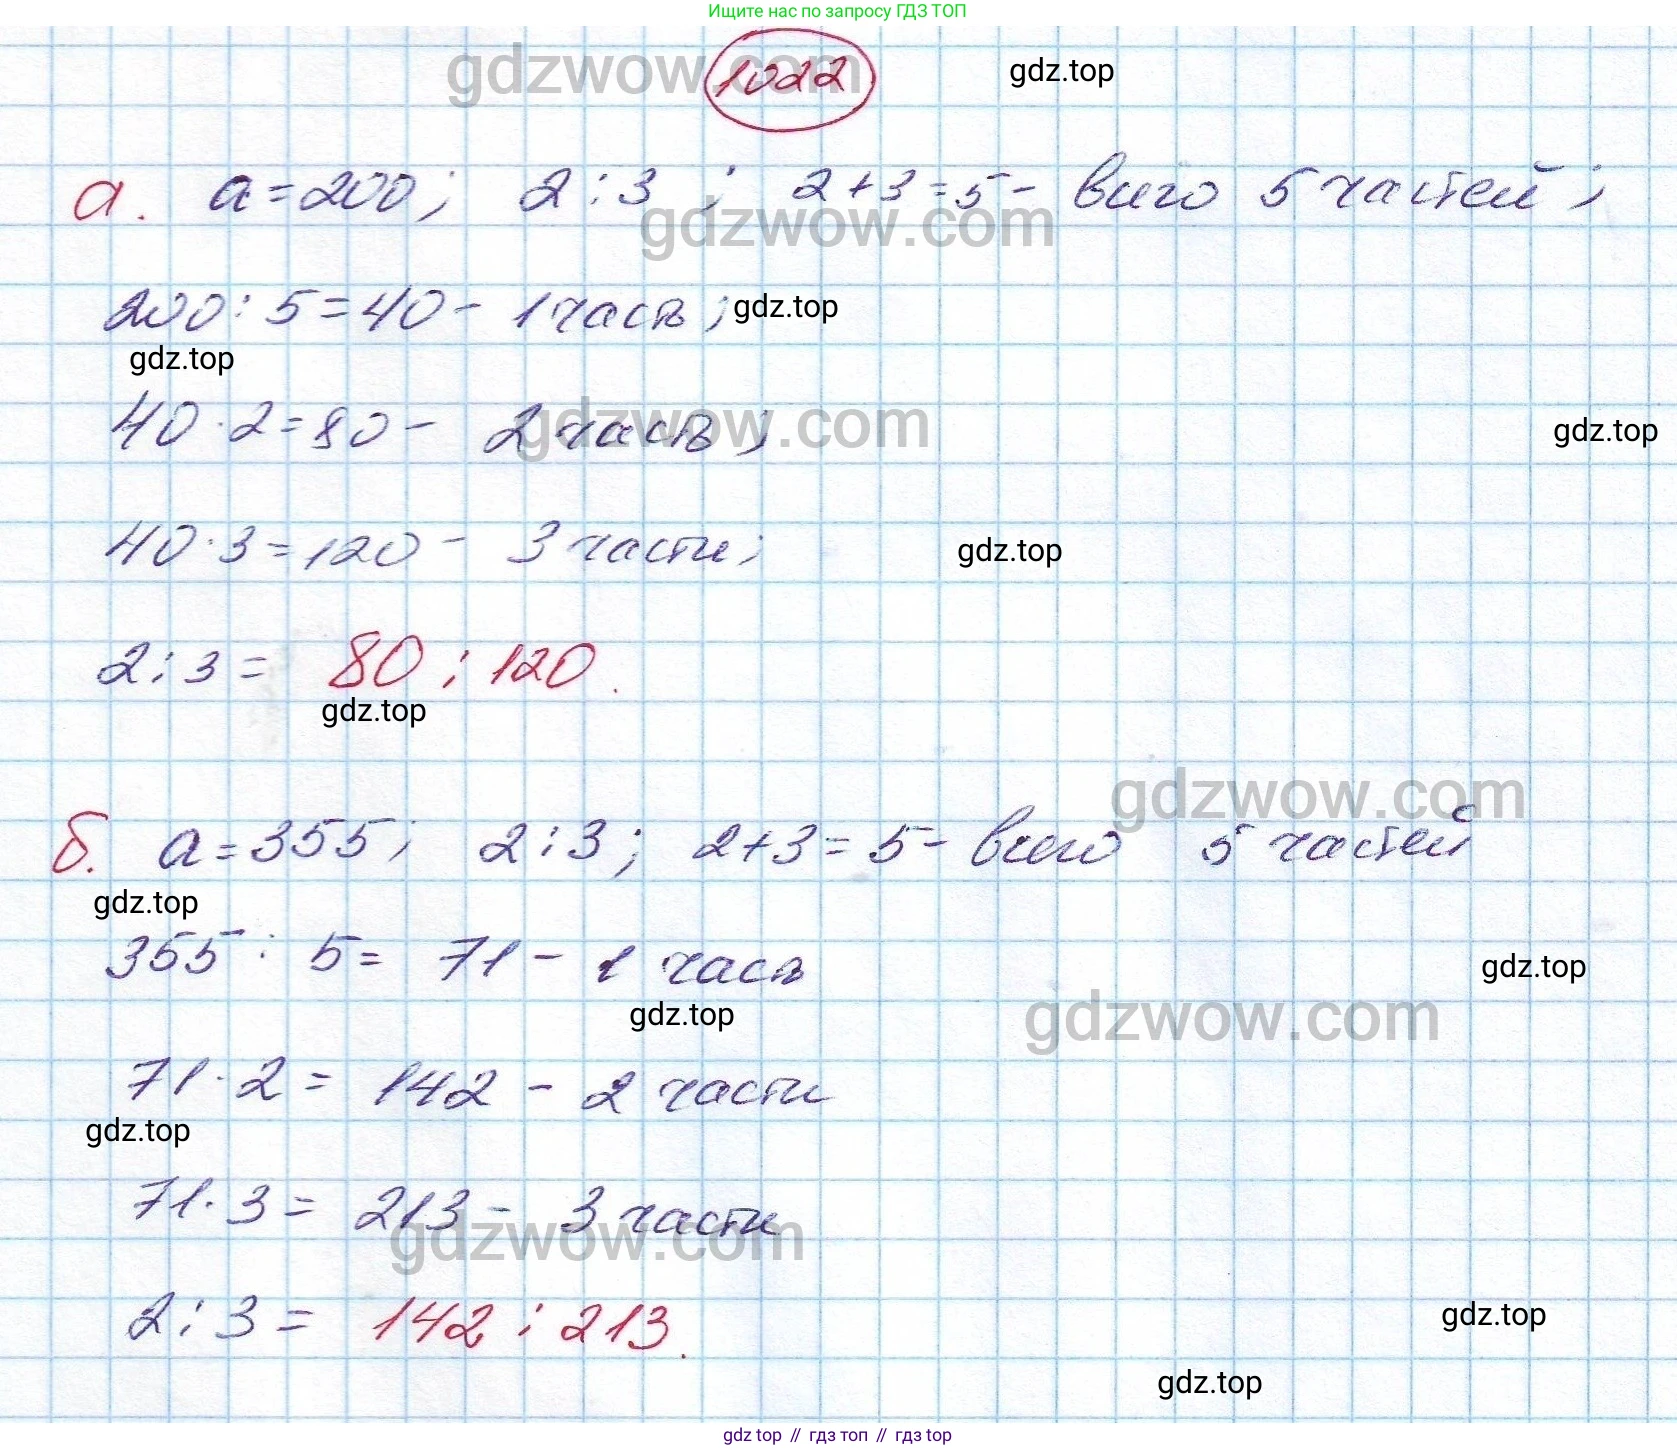 Ищите нас по запросу ГДЗ ТОП
gdzwow.com
1022
gdz.top
а. a=200; 2:3; 2+3=5- всего 5 частей;
gdzwow.com
200:5=40- 1 часть;
gdz.top
gdz.top
40·2=80- 2 часть;
gdzwow.com
gdz.top
40·3=120- 3 части;
gdz.top
2:3= 80:120.
gdz.top
gdzwow.com
б. a=355; 2:3; 2+3=5- всего 5 частей
gdz.top
355:5= 71- 1 часть
gdz.top
gdz.top
gdzwow.com
71·2= 142 - 2 части
gdz.top
71·3= 213- 3 части
gdzwow.com
2:3= 142:213.
gdz.top
gdz.top
gdz top // гдз топ // гдз top